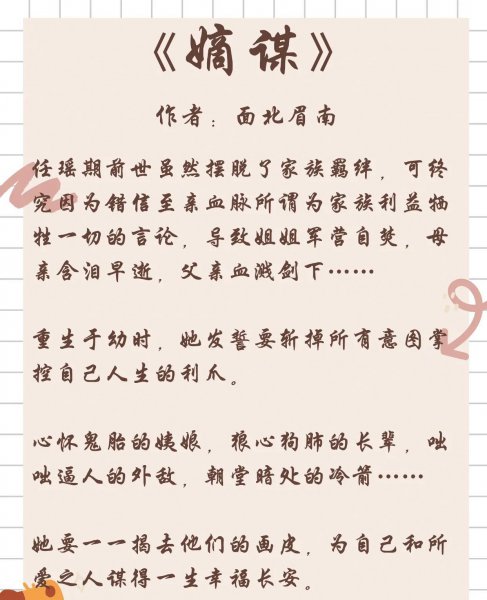 《嫡谋》
作者：面北眉南
任瑶期前世虽然摆脱了家族羁绊，可终
究因为错信至亲血脉所谓为家族利益牺
牲一切的言论，导致姐姐军营自焚，母
亲含泪早逝，父亲血溅剑下……
重生于幼时，她发誓要斩掉所有意图掌
控自己人生的利爪。
心怀鬼胎的姨娘，狼心狗肺的长辈，咄
咄逼人的外敌，朝堂暗处的冷箭……
她要一一揭去他们的画皮，为自己和所
爱之人谋得一生幸福长安。